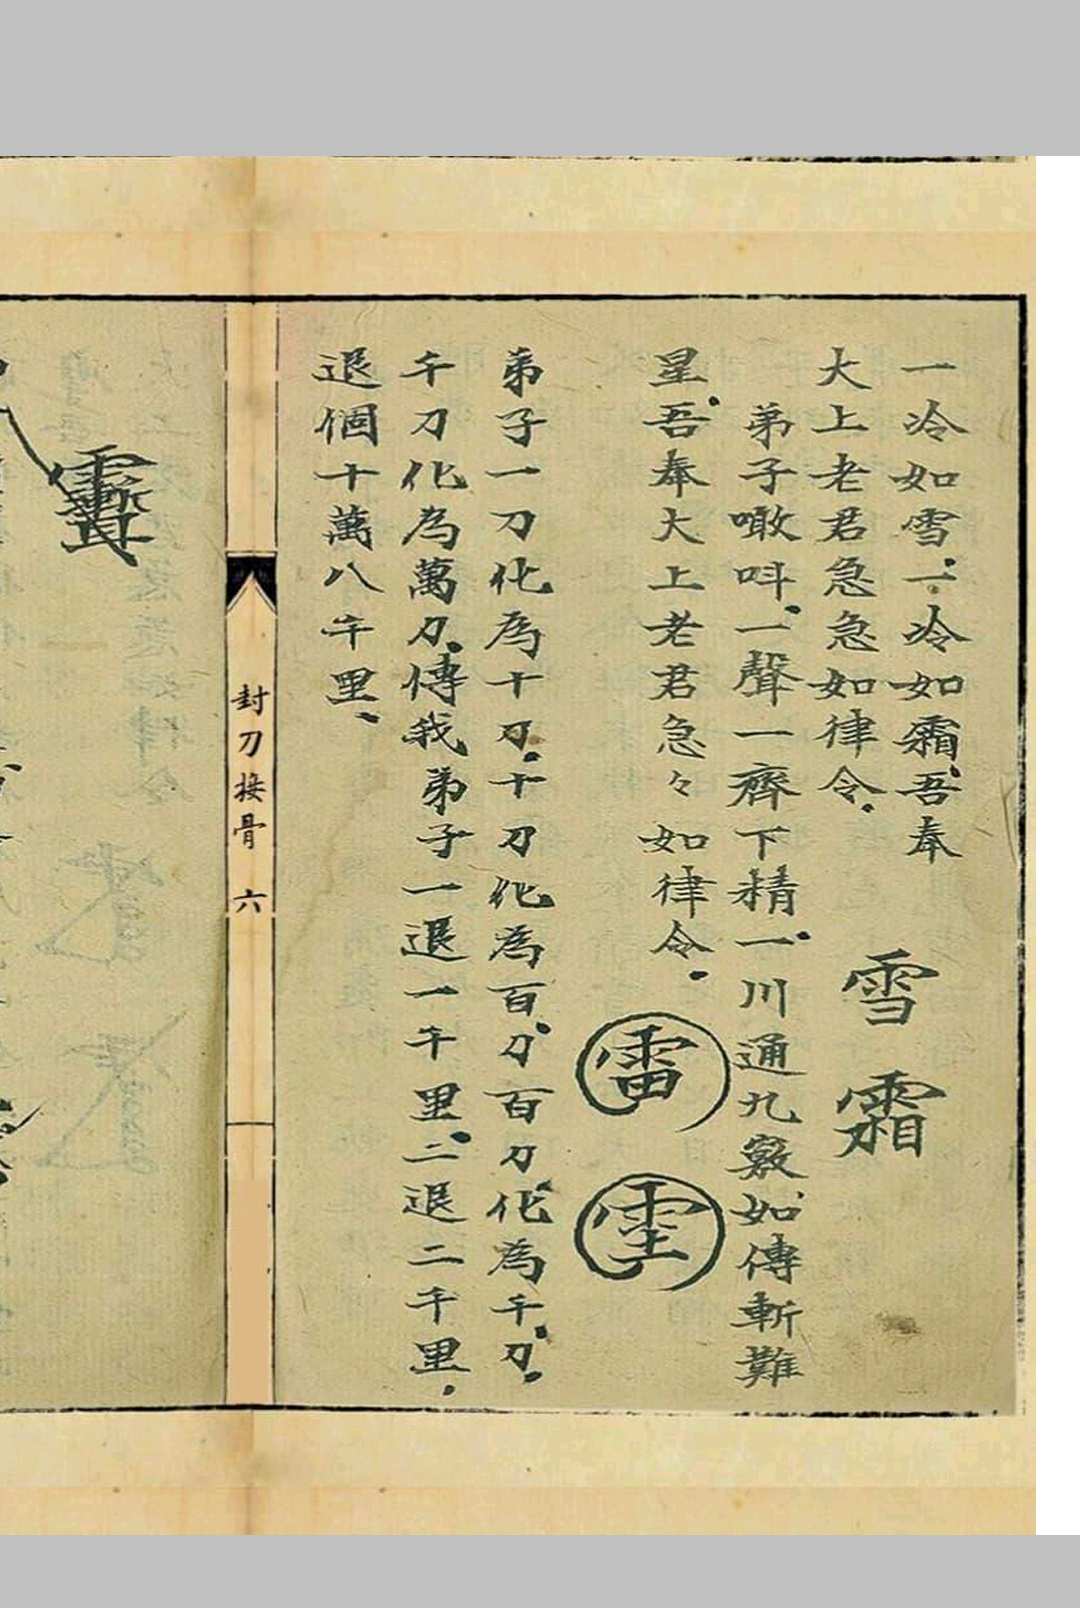 一冷如雪.一冷如霜.吾奉
大上老君急急如律令.
雪 霜
弟子噉呌.一聲一齊下精.一川通九竅如傳斬難
星.吾奉大上老君急々如律令.
雷
弟子一刀化為十刀.十刀化為百.刀百刀化為千.刀.
千刀化為萬刀.傳我弟子一退一千里.二退二千里.
退個十萬八千里.
封刀接骨 六